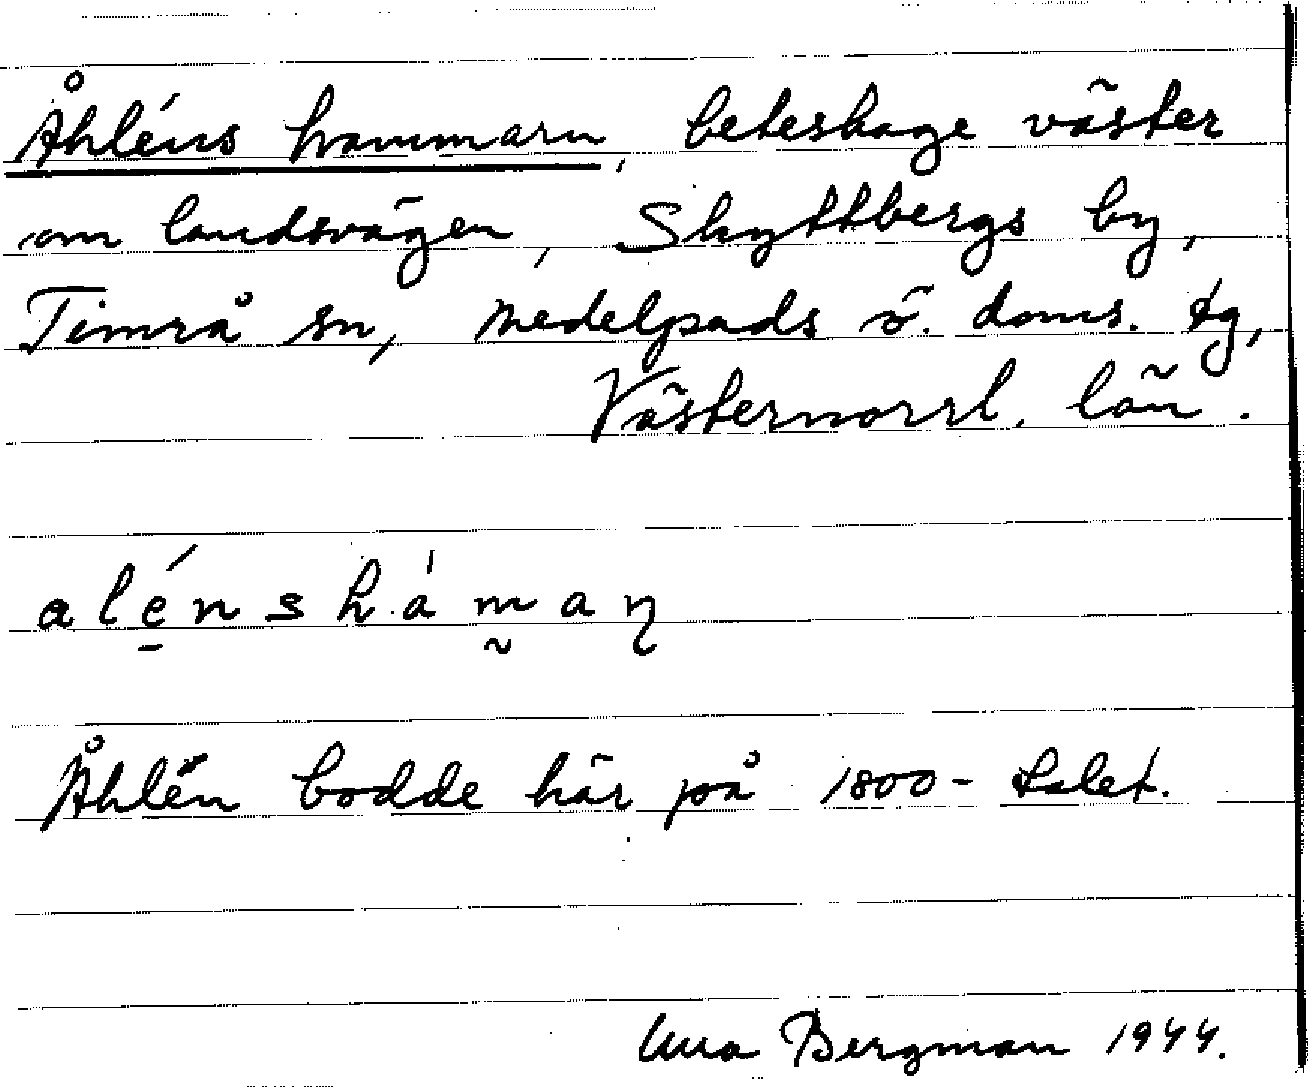 Åhléns hammarn, beteshage väster
om landsvägen, Skyttbergs by,
Timrå sn, Medelpads ö. doms. tg,
Västernorrl. län.
alé̱nshám̰aɳ
Åhlén bodde här på 1800-talet.
Bergman 1944.